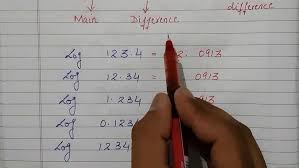 difference
Main Difference
Log 123.4 = 2.0913
Log 12.34 = 0913
Log 1.234 0913
Log 0.1234
Log 1234